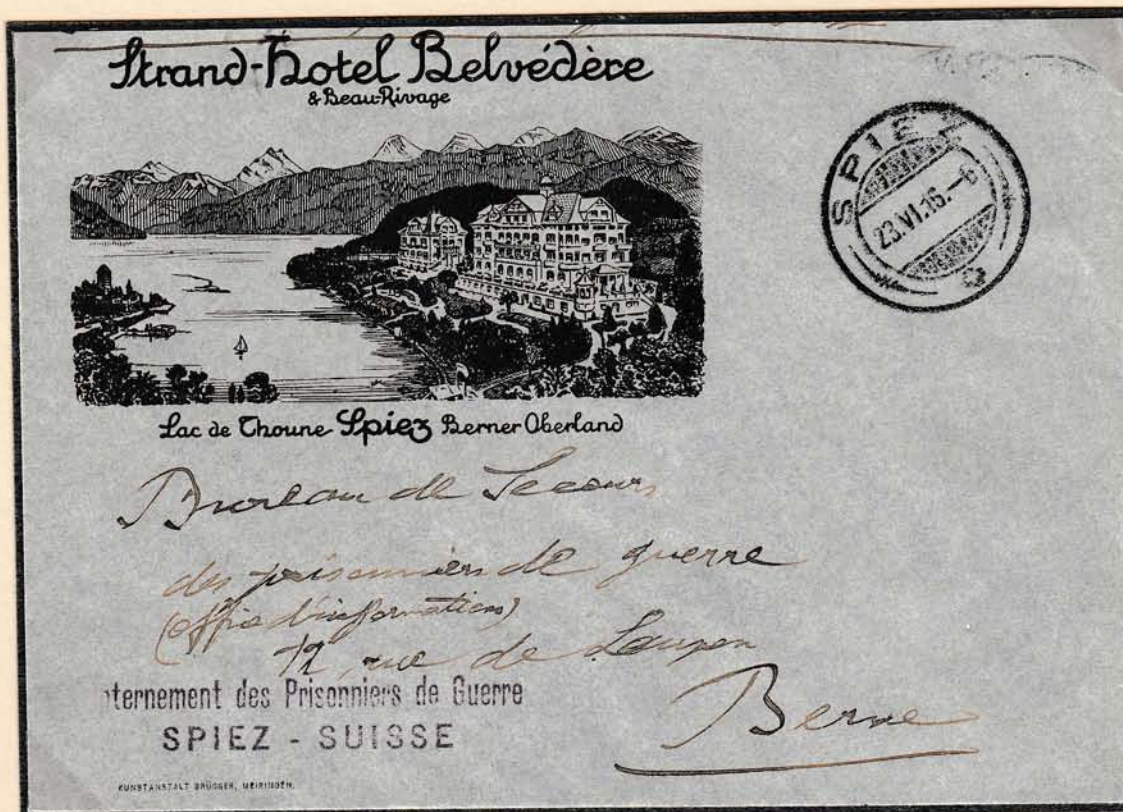 Strand-Hotel Belvédère
& Beau-Rivage
SPIEZ
23.VI.16.-6
Lac de Thoune Spiez Berner Oberland
Bureau de Secours
des prisonniers de guerre
(Office d'informations)
12, rue de Laupen
Berne
ternement des Prisonniers de Guerre
SPIEZ - SUISSE
KUNSTANSTALT BRÜGGER, MEIRINGEN.